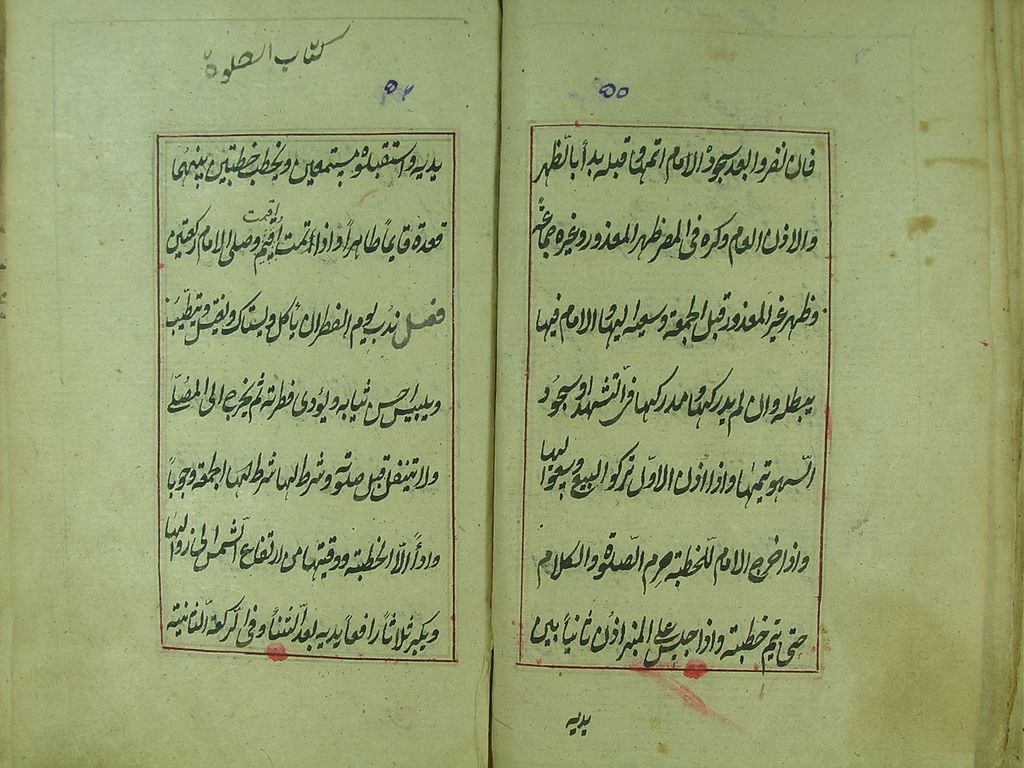 ۵۵
فان نفروا بعد سجود الامام اتمها وقبله بدأ بالظهر
والاذن العام وكره فى المصر ظهر المعذور وغيره جماعة
وظهر غير المعذور قبل الجمعة وسعيه اليها والامام فيها
يبطله وان لم يدركها ومدركها فى التشهد او سجود
السهو يتمها واذا اذن الاول تركو البيع وسعوا اليها
واذا خرج الامام للخطبته حرم الصلوة والكلام
حتى يتم خطبته واذا جلس على المنبر اذن ثانيا بين
يديه
كتاب الصلوة
يديه واستقبلوه مستمعين ويخطب خطبتين بينهما
قعدة قايما طاهرا واذا اتمت اقيم وصلى الامام ركعتين
اقيمت
فصل ندب ليوم الفطر ان يأكل ويستاك ويغتسل ويتطيب
ويلبس احسن ثيابه ويؤدى فطرته ثم يخرج الى المصلى
ولا يتنفل قبل صلوته وشرط لها شرط لها الجمعة وجوبا
واداأ الا الخطبته ووقيتها من ارتفاع الشمس الى زوالها
ويكبر ثلاثا رافعا يديه بعد الثنأ وفى الركعة الثانيته